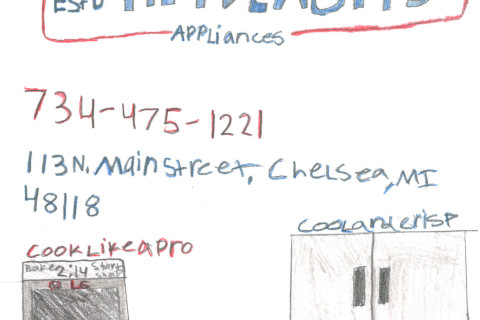 EST'D
APPLiances
734-475-1221
113 N. Main Street, Chelsea, MI
48118
COOLandcrisp
COOKLikeaPRO
Bake 2:14 Start
Stop
LG